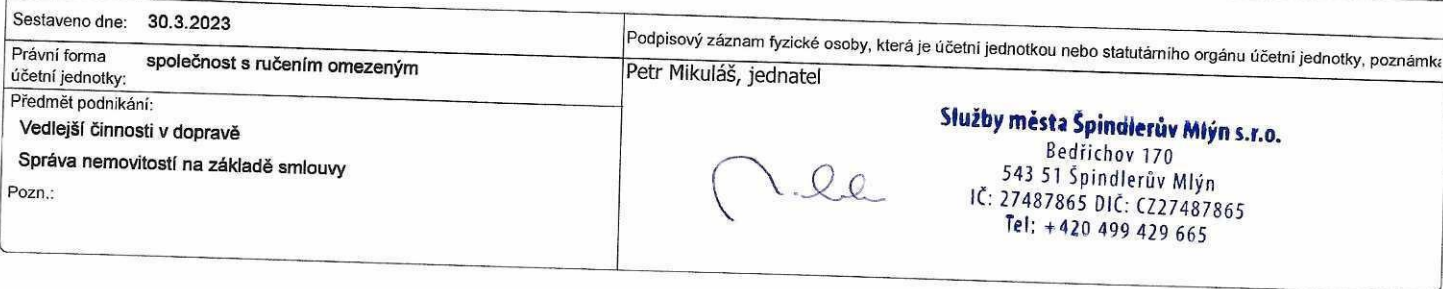 Sestaveno dne: 30.3.2023
Právní forma účetní jednotky: společnost s ručením omezeným
Předmět podnikání:
Vedlejší činnosti v dopravě
Správa nemovitostí na základě smlouvy
Pozn.:
Podpisový záznam fyzické osoby, která je účetní jednotkou nebo statutárního orgánu účetní jednotky, poznámka
Petr Mikuláš, jednatel
Služby města Špindlerův Mlýn s.r.o.
Bedřichov 170
543 51 Špindlerův Mlýn
IČ: 27487865 DIČ: CZ27487865
Tel: +420 499 429 665